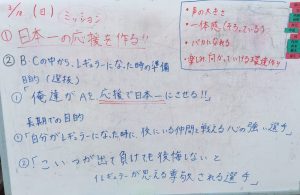 3/12 (日) ミッション
① 日本一の応援を作る!!
・声の大きさ
・一体感
・バカになれる
② B・Cの中から、レギュラーになった時の準備
B的 (選抜)
「俺達がAを応援で日本一にさせる!!」
長期での目的
①「自分がレギュラーになった時に、供にいる仲間と戦える心の強い選手」
②「こいつが出て負けても後悔しないと
レギュラーが思える尊敬される選手」